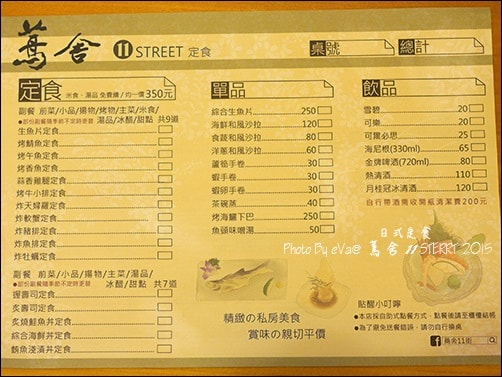 蔦舍 11 STREET 定食
桌號
總計
定食 米食、湯品 免費續/均一價350元
副餐 前菜/小品/揚物/烤物/主菜/米食/
●部份副餐隨季節不定時更替 湯品/冰醋/甜點 共9道
生魚片定食
烤鯖魚定食
烤午魚定食
烤香魚定食
蒜香雞腿定食
烤牛小排定食
炸天婦羅定食
炸軟蟹定食
炸豬排定食
炸魚排定食
炸牡蠣定食
副餐 前菜/小品/揚物/主菜/湯品/
●部份副餐隨季節不定時更替 冰醋/甜點 共7道
握壽司定食
炙壽司定食
炙燒鮭魚丼定食
綜合海鮮丼定食
鮪魚淺漬丼定食
單品
綜合生魚片 250
海鮮和風沙拉 120
食蔬和風沙拉 80
洋蔥和風沙拉 60
蘆筍手卷 30
蝦手卷 30
蝦卵手卷 30
茶碗蒸 40
烤海鱺下巴 250
魚頭味噌湯 50
飲品
雪碧 20
可樂 20
可爾必思 25
海尼根(330ml) 65
金牌啤酒(720ml) 80
熱清酒 110
月桂冠冰清酒 120
自行帶酒需收開瓶清潔費200元
日式定食
Photo By eVa@ 蔦舍 11 STERRT 2015
精緻の私房美食
賞味の親切平價
貼醒小叮嚀
●本店採自助式點餐方式，點餐後請至櫃檯結帳
●為了避免送餐錯誤，請勿自行換桌
蔦舍11街